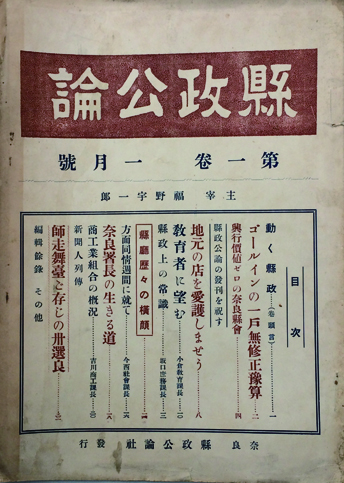 縣政公論
第一卷 一月號
主宰 福野宇一郎
目次
動く縣政(卷頭言)……一
ゴールインの一戸無修正豫算……二
興行價値ゼロの奈良縣會……四
縣政公論の發刊を祝す
地元の店を愛護しませう……八
敎育者に望む……小倉敎育課長…一〇
縣政上の常識……坂口庶務課長…一三
縣廳歷々の橫顏……一四
方面同情週間に就て……今西社會課長…一六
奈良署長の生きる道……一八
商工業組合の概況……吉川商工課長…
新聞人列傳
師走舞臺と存じの卅選良
編輯餘錄 その他
奈良 縣政公論社發行